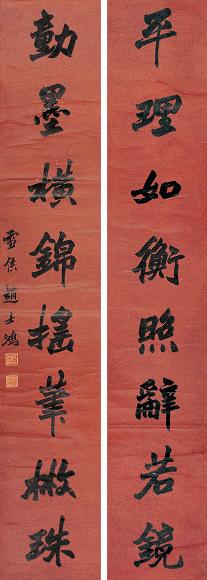 平理如衡照辭若鏡
動墨橫錦搖筆散珠
雪侯趙士鴻